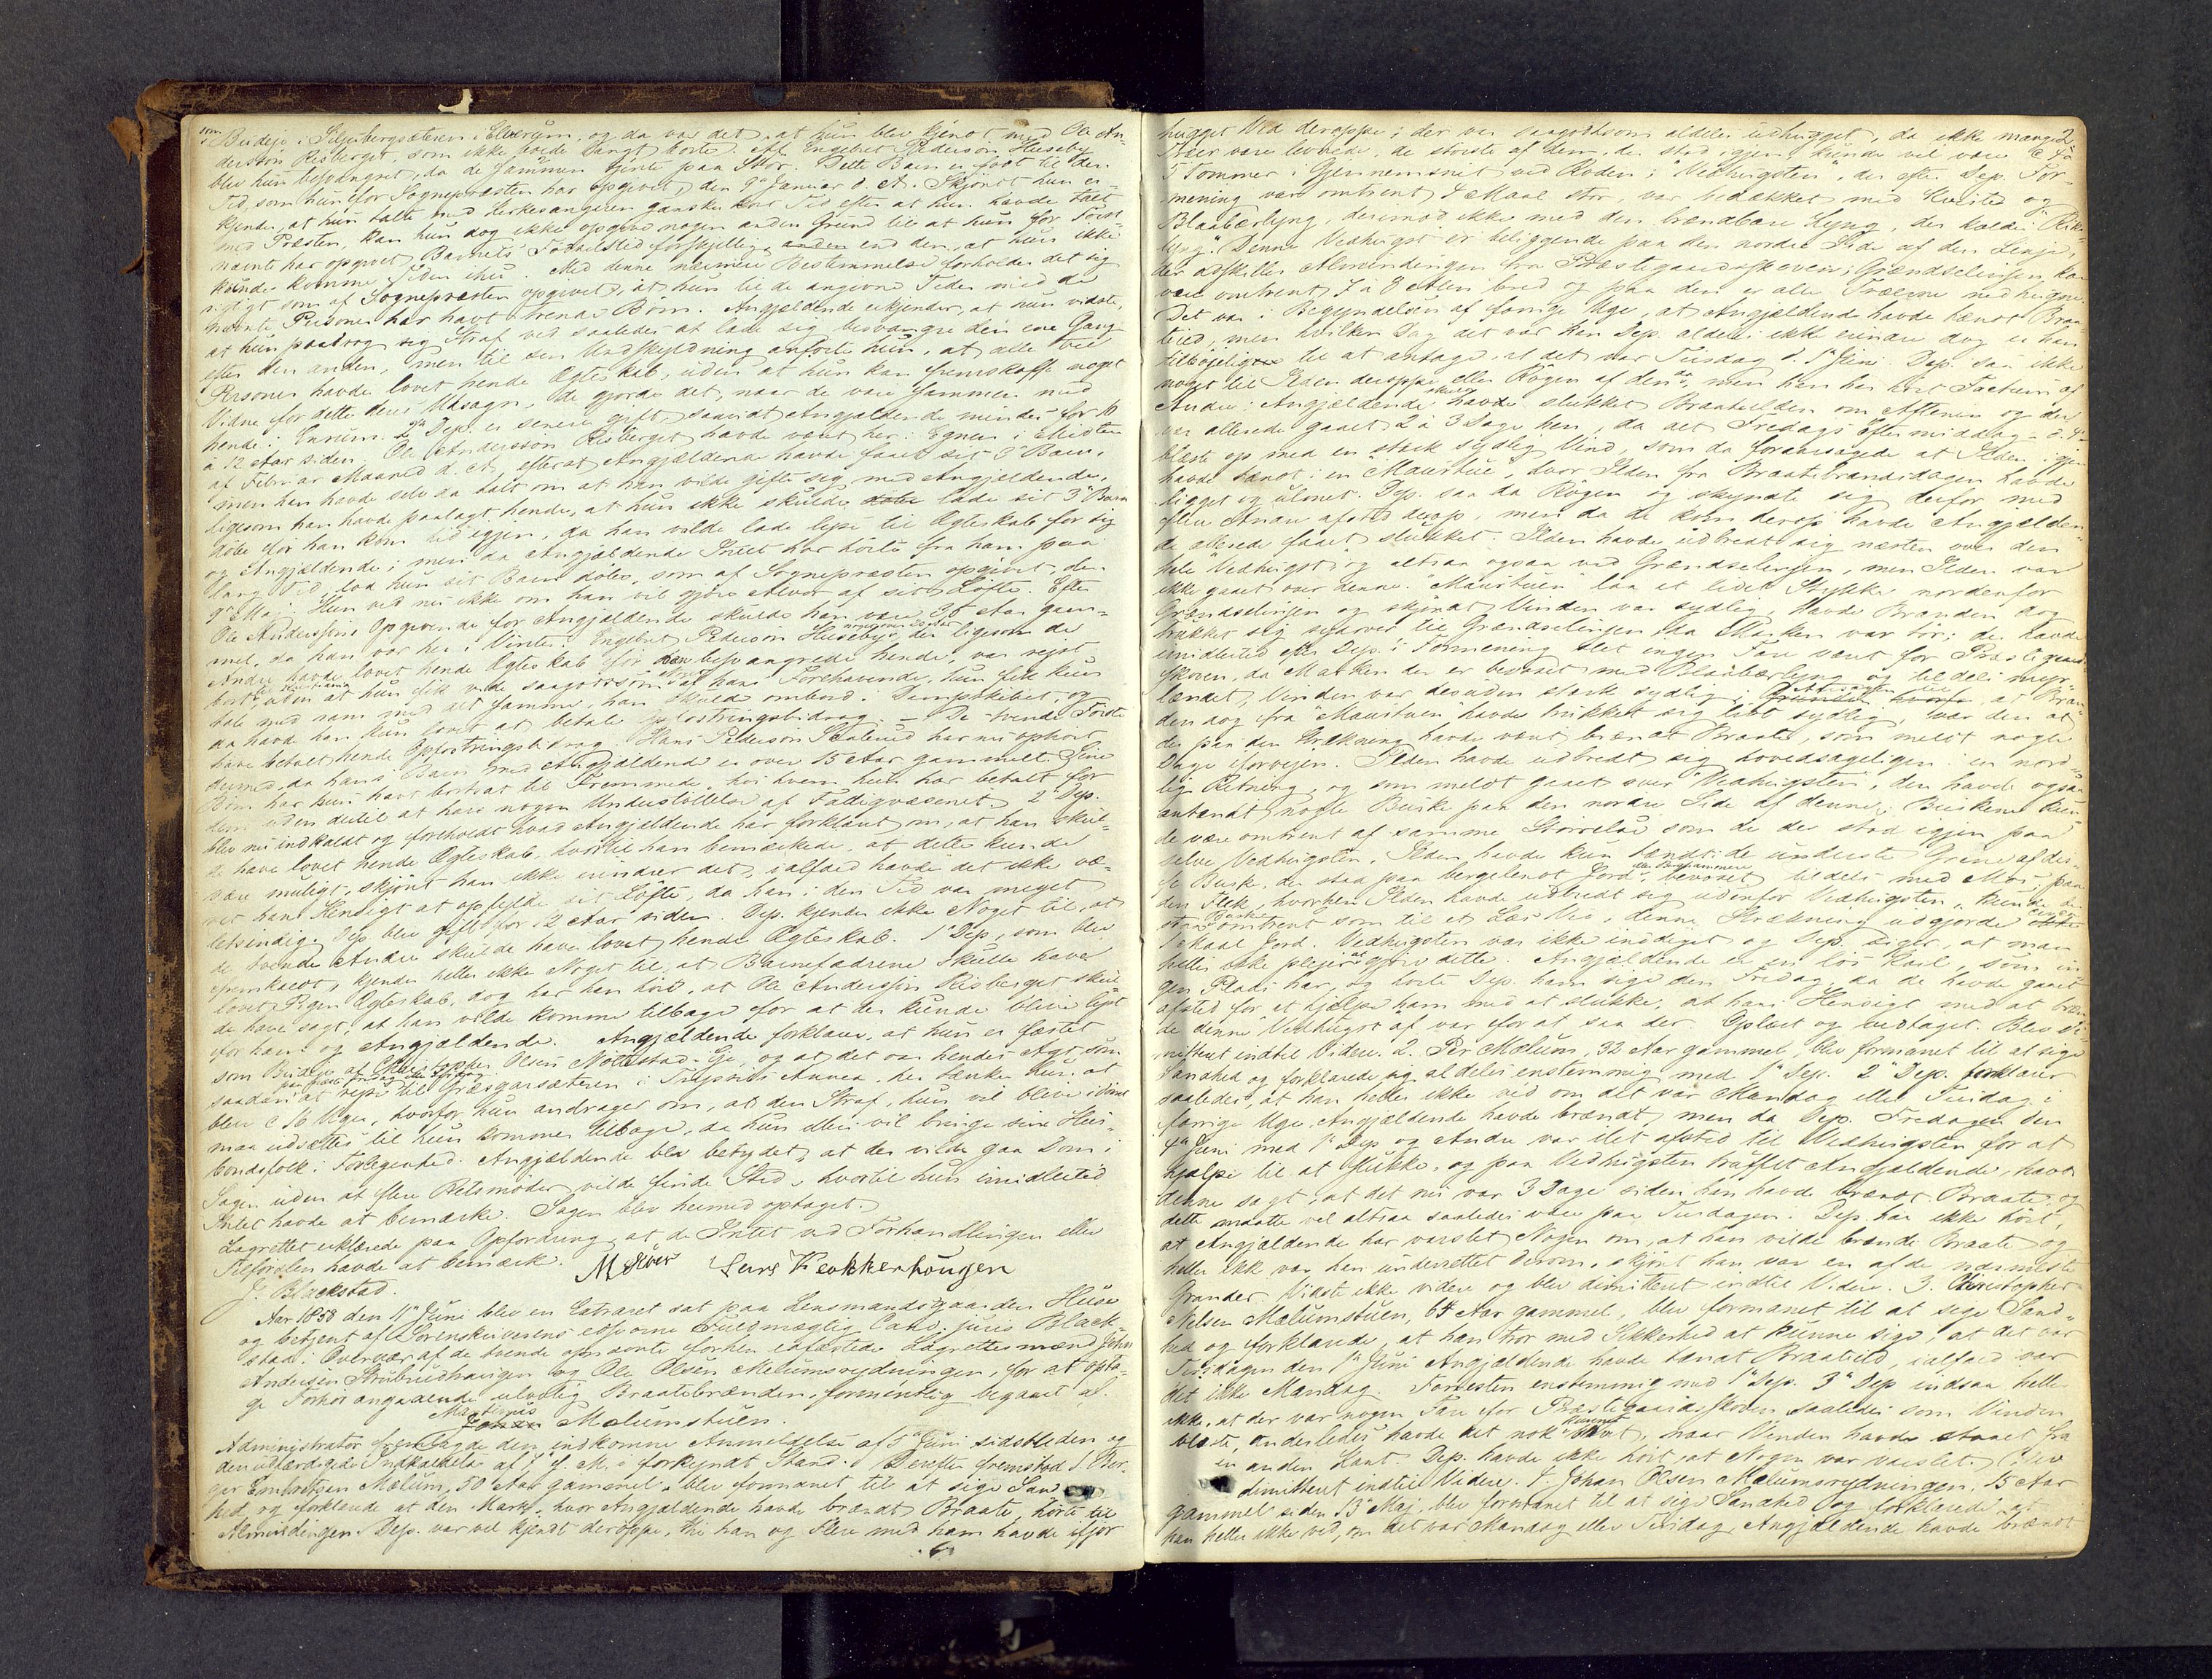 som
Budeje i Siljubergsæteren i Elverum, og da var det, at hun blev kjendt med Ole An-
dersson Risberget, som ikke boede langt borte. Af Engebret Pederson Huseby
blev hun besvangret, da de sammen tjente paa Stor. Dette Barn er født til den
Tid, som hun for Sognepræsten har opgivet, den 9de Januar d. A. Skjöndt hun er-
kjender, at hun talte med Kirkesangeren ganske kort Tid efter at hun havde talt
med Præsten, kan hun dog ikke opgive nogen anden Grund til at hun for Först-
nævnte har opgivet Barnets Fødselsted forskjellig, anden end den, at hun ikke
kunde komme Tiden ihu. Med denne nærmere Bestemmelse forholder det sig
rigtigt som af Sognepræsten opgivet, at hun til de angivne Tider med de
nævnte Personer har havt trende Börn. Angjældende erkjender, at hun vidste,
at hun paadrog sig Straf ved saaledes at lade sig besvangre den ene Gang
efter den anden, men til sin Undskyldning anførte hun, at alle tre
Personer havde lovet hende Ægteskab, uden at hun kan fremskaffe noget
Vidne for dette deres Udsagn, de gjorde det, naar de vare sammen med
hende i Enrum. 2den Dep. er senere gift, saavidt Angjældende mindes for 10
à 12 Aar siden. Ole Andersson Risberget havde været her i Egnen i Midten
af Februar Maaned d. A., efterat Angjældende havde faaet sit 3die Barn,
men han havde selv da talt om at han vilde gifte sig med Angjældende,
ligesom han havde paalagt hende, at hun ikke skulde lade sit 3die Barn
döbe för han kom hid igjen, da han vilde lade lyse til Ægteskab for sig
og Angjældende; men da Angjældende Intet har hört fra ham paa
lang Tid, lod hun sit Barn döbe, som af Sognepræsten opgivet, den
9de Maj. Hun ved nu ikke om han vil gjöre Alvor af sit Löfte. Efter
Ole Anderssons Opgivende for Angjældende skulde han være 36 Aar gam-
mel, da han var her i Vinter. Engebret Pederson Huseby, der ligesom de
Andre havde lovet hende Ægteskab för han besvangrede hende, var reist
bort uden at hun fik vide saagodtsom af hans Forehavende, hun fik kun
tale med ham med det samme, han skulde ombord i Dampskibet, og
da havde han kun lovet at betale Opfostringsbidrag. – De tvende Förste
have betalt hende Opfostringsbidrag. Hans Pederson Taalerud har nu ophört
dermed, da hans Barn med Angjældende er over 15 Aar gammelt. Sine
Börn har hun havt bortsat til Fremmede, hos hvem hun har betalt for
dem uden dertil at have nogen Understöttelse af Fattigvæsenet. 2den Dep.
blev nu indkaldt og foreholdt hvad Angjældende har forklaret om, at han skul-
de have lovet hende Ægteskab, hvortil han bemærkede, at dette kunde
være muligt, skjönt han ikke erindrer det, ialfald havde det ikke væ-
ret hans Hensigt at opfylde sit Löfte, da han i den Tid var meget
letsindig. Dep. blev gift for 12 Aar siden. Dep. kjender ikke Noget til, at
de tvende Andre skulde have lovet hende Ægteskab. 1ste Dep., som blev
fremkaldt, kjender heller ikke Noget til, at Barnefædrene skulle have
lovet Pigen Ægteskab, dog har han hört, at Ole Andersson Risberget skul-
de have sagt, at han vilde komme tilbage for at der kunde blive lyst
for ham og Angjældende. Angjældende forklarer, at hun er fæstet
som Budeje af Christopher Olsen Nötaasen og at det var hendes Agt som
saadan at rejse til Græsgarsæteren i Trysilds Annex, her tænker hun at
blive c 16 Uger, hvorfor hun andrager om, at den Straf, hun vil blive idömt
maa udsættes til hun kommer tilbage, da hun ellers vil bringe sine Hus-
bondsfolk i Forlegenhed. Angjældende blev betydet, at der vilde gaa Dom i
Sagen uden at flere Retsmöder vilde finde Sted, hvortil hun imidlertid
Intet havde at bemærke. Sagen blev hermed optaget.
Lagrettet erklærede paa Opfordring, at de Intet ved Forhandlingen eller
Protokollen havde at bemærke.
M Sæter Lars Klokkerhougen
J. Blackstad.
Aar 1858 den 11te Juni blev en Extraret sat paa Lensmandsgaarden Huse
og betjent af Sorenskriverens edsvorne Fuldmægtig Cand. juris Black-
stad i Overvær af de tvende opnævnte forhen edfæstede Lagrettesmænd John
Andersen Strubrudhaugen og Ole Olsen Melumsrydningen, for at opta-
ge Forhör angaaende ulovlig Braatebrænden, formentlig begaaet af
Martinus
Johan Mælumstuen.
Administrator fremlagde den indkomne Anmeldelse af 5te Juni sidstleden og
den udfærdigede Indkaldelse af f. M. i forkyndt Stand. Derefter fremstod 1. Bir-
ger Embretsen Mælum, 50 Aar gammel, blev formanet til at sige Sand-
hed og forklarede at den Mark, hvor Angjældende havde brændt Braate, hörte til
Almindingen. Dep. var vel kjendt deroppe, thi han og Flere med ham havde ifjor
2
hugget Ved deroppe; der var saagodtsom aldeles udhugget, da ikke mange
Træer vare levnede, de störste af dem, der stod igjen, kunde vel være c 4 à
5 Tommer i Gjennemsnit ved Roden; "Vedhugsten", der efter Dep. For-
mening var omtrent 4 Maal stor, var bedækket med Kvisted og
Blaabærlyng, derimod ikke med den brændbare Lyng, der kaldes "Rik-
lyng". Denne Vedhugst er beliggende paa den nordre Side af den Linje,
der adskiller Almindingen fra Præstegaardsskoven; Grændselinjen kan
være omtrent 7 à 8 Alen bred og paa den er alle Træerne nedhugne.
Det var i Begyndelsen af forrige Uge, at Angjældende havde tændt Braa-
teild, men hvilken Dag det var kan Dep. aldeles ikke erindre dog er han
tilböjeligere til at antage, at det var Tirsdag d. 1ste Juni. Dep. saa ikke
noget til Ilden deroppe eller Rögen af den da, men han har hört Factum af
Andre. Angjældende havde slukket Braateilden om Aftenen og der
var allerede gaaet 2 à 3 Dage hen, da det Fredags Eftermiddag – d. 4de
blæste op med en stærk sydlig Vind, som da foraarsagede at Ilden igjen
havde tændt i en "Maurtue", hvor Ilden fra Braatebrandsdagen havde
ligget og ulmet. Dep. saa da Rögen og skyndte sig derfor med
flere Andre afsted derop, men da de kom derop havde Angjælden-
de allerede faaet slukket. Ilden havde udbredt sig næsten over den
hele Vedhugst og altsaa ogsaa ved Grændselinjen, men Ilden var
ikke gaaet over denne. "Maurtuen" laa et lidet Stykke nordenfor
Grændselinjen og skjöndt Vinden var sydlig, havde Branden dog
trukket sig sydover til Grændselinjen, da Marken var tör; der havde
imidlertid efter Dep.s Formening slet ingen Fare været for Præstegaards-
skoven, da Marken der er bevoxet med Blaabærlyng og tildels myr-
lændt, Vinden var desuden stærk sydlig; Aarsagen til at Bran-
den dog fra "Maurtuen" havde trukket sig lidt sydlig, var den at
der paa den Strækning havde været brændt Braate, som meldt nogle
Dage iforvejen. Ilden havde udbredt sig hovedsageligen i en nord-
lig Retning, og som meldt gaaet over "Vedhugsten", den havde ogsaa
antændt nogle Buske paa den nordre Side af denne; Buskene kun-
de være omtrent af samme Störrelse som de der stod igjen paa
selve Vedhugsten. Ilden havde kun tændt i de underste Grene af dis-
se Buske, der staa paa berglendt Jord, bevoxet tildels med Mos; paa
den Flek, hvorhen Ilden havde udbredt sig udenfor Vedhugsten, kunde der
staa omtrent som til et Læs Ved; denne Strækning udgjorde
1 Maal Jord. Vedhugsten var ikke indhegnet og Dep. siger, at man
heller ikke plejer at gjöre dette. Angjældende er en lös Karl, som in-
gen Plads har, og hörte Dep. ham sige den Fredag, da de havde gaaet
afsted for at hjælpe ham med at slukke, at hans Hensigt med at bræn-
de denne Vedhugst af var for at saa der. Oplæst og vedtaget. Blev di-
mitteret indtil Videre. 2. Per Mælum, 32 Aar gammel, blev formanet til at sige
Sandhed og forklarede sig aldeles enstemmig med 1ste Dep. 2den Dep. forklarer
saaledes, at han heller ikke ved om det var Mandag eller Tirsdag i
forrige Uge, Angjældende havde brændt, men da Dep. Fredagen den
4de Juni med 1ste Dep og Andre var ilet afsted til Vedhugsten for at
hjælpe til at slukke, og paa Vedhugsten truffet Angjældende, havde
denne sagt, at det nu var 3 Dage siden han havde brændt Braate, og
dette maatte vel altsaa saaledes være paa Tirsdagen. Dep. har ikke hört,
at Angjældende har varslet Nogen om, at han vilde brænde Braate og
heller ikke var han underrettet derom, skjönt han var en af de nærmeste
Grander. Vidste ikke videre og blev dimitteret indtil Videre. 3. Christopher
Nelsen Mælumstuen, 64 Aar gammel, blev formanet til at sige Sand-
hed og forklarede, at han tror med Sikkerhed at kunne sige, at det var
Tirsdagen den 1ste Juni Angjældende havde tændt Braateild, ialfald var
det ikke Mandag. Forresten enstemmig med 1ste Dep. 3die Dep indsaa heller
ikke, at der var nogen Fare for Præstegaardsskoven saaledes som Vinden
blæste, anderledes havde det nok kunnet været, naar Vinden havde staaet fra
en anden Kant. Dep. havde ikke hört, at Nogen var varslet. Blev
dimitteret indtil Videre. 4. Johan Olsen Mælumsrydningen, 15 Aar
gammel siden 13de Maj, blev formanet til at sige Sandhed og forklarede at
han heller ikke ved, om det var Mandag eller Tirsdag, Angjældende havde brændt